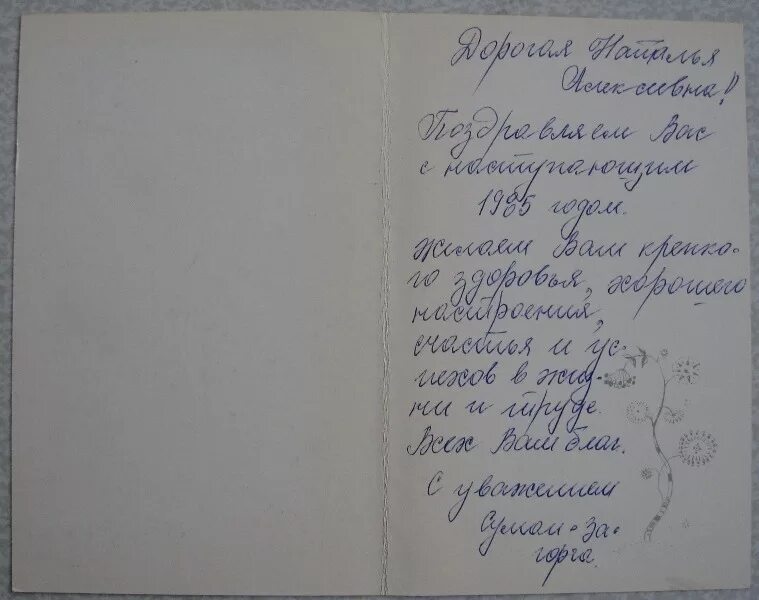 Дорогая Наталья
Алексеевна!
Поздравляем Вас
с наступающим
1965 годом.
Желаем Вам крепко-
го здоровья, хорошего
настроения,
счастья и ус-
пехов в жиз-
ни и труде.
Всех Вам благ.
С уважением